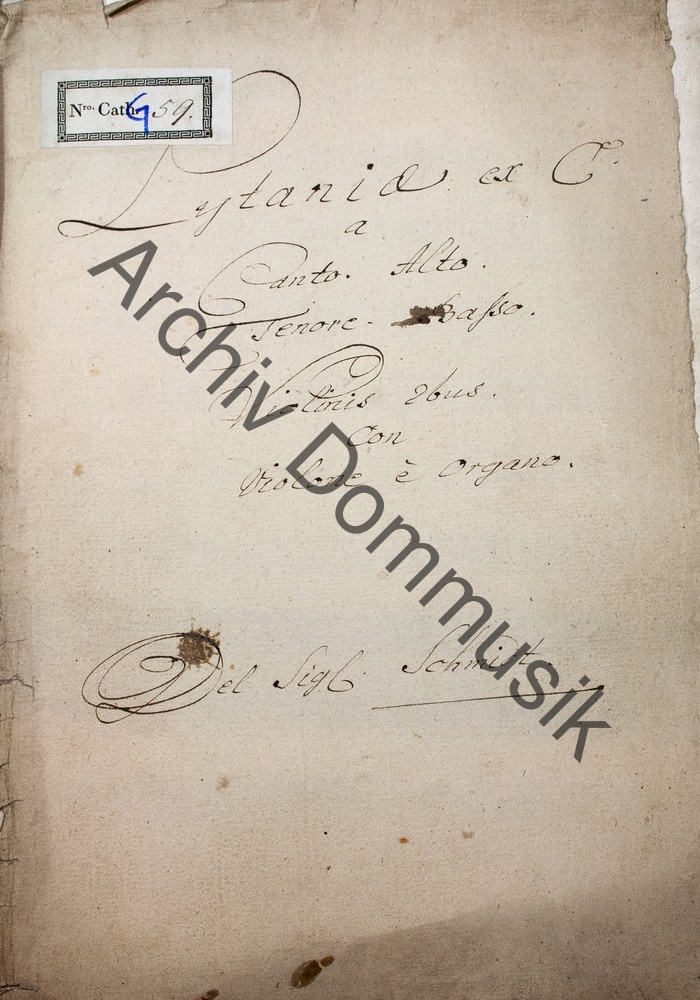 Nro. Cath. G 59.
Lytaniæ ex C
a
Canto. Alto.
Tenore. Basso.
Violinis 2bus.
Con
Violone è Organo.
Del Sigl. Schmidt.
Archiv Dommusik